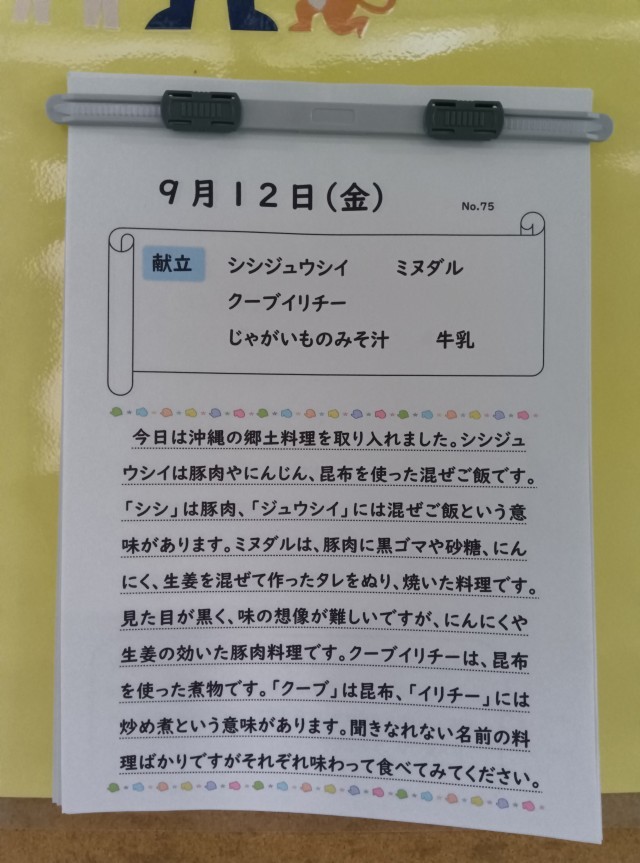 9月12日(金)
No.75
献立 シシジュウシイ ミヌダル
クーブイリチー
じゃがいものみそ汁 牛乳
今日は沖縄の郷土料理を取り入れました。シシジュ
ウシイは豚肉やにんじん、昆布を使った混ぜご飯です。
「シシ」は豚肉、「ジュウシイ」には混ぜご飯という意
味があります。ミヌダルは、豚肉に黒ゴマや砂糖、にん
にく、生姜を混ぜて作ったタレをぬり、焼いた料理です。
見た目が黒く、味の想像が難しいですが、にんにくや
生姜の効いた豚肉料理です。クーブイリチーは、昆布
を使った煮物です。「クーブ」は昆布、「イリチー」には
炒め煮という意味があります。聞きなれない名前の料
理ばかりですがそれぞれ味わって食べてみてください。